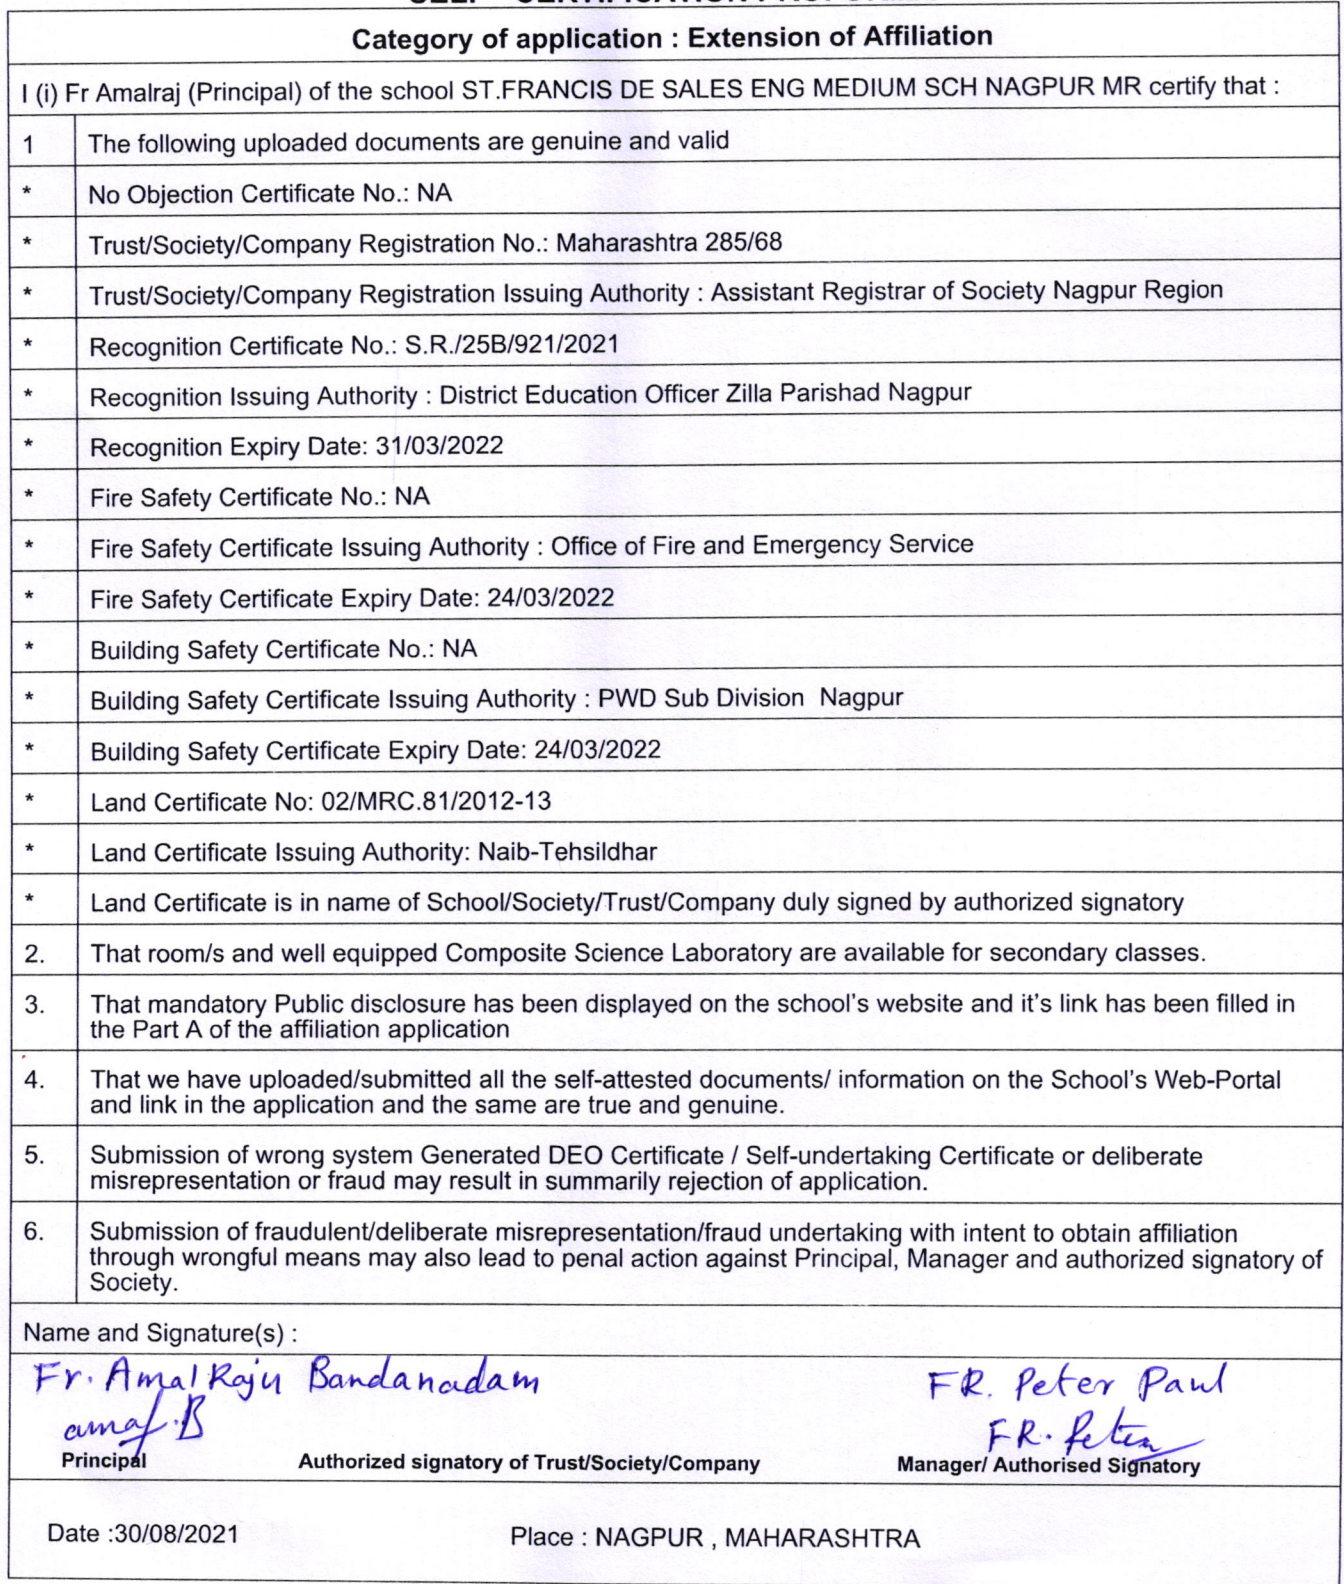 Category of application : Extension of Affiliation
I (i) Fr Amalraj (Principal) of the school ST.FRANCIS DE SALES ENG MEDIUM SCH NAGPUR MR certify that :
1 The following uploaded documents are genuine and valid
* No Objection Certificate No.: NA
* Trust/Society/Company Registration No.: Maharashtra 285/68
* Trust/Society/Company Registration Issuing Authority : Assistant Registrar of Society Nagpur Region
* Recognition Certificate No.: S.R./25B/921/2021
* Recognition Issuing Authority : District Education Officer Zilla Parishad Nagpur
* Recognition Expiry Date: 31/03/2022
* Fire Safety Certificate No.: NA
* Fire Safety Certificate Issuing Authority : Office of Fire and Emergency Service
* Fire Safety Certificate Expiry Date: 24/03/2022
* Building Safety Certificate No.: NA
* Building Safety Certificate Issuing Authority : PWD Sub Division Nagpur
* Building Safety Certificate Expiry Date: 24/03/2022
* Land Certificate No: 02/MRC.81/2012-13
* Land Certificate Issuing Authority: Naib-Tehsildhar
* Land Certificate is in name of School/Society/Trust/Company duly signed by authorized signatory
2. That room/s and well equipped Composite Science Laboratory are available for secondary classes.
3. That mandatory Public disclosure has been displayed on the school's website and it's link has been filled in
the Part A of the affiliation application
4. That we have uploaded/submitted all the self-attested documents/ information on the School's Web-Portal
and link in the application and the same are true and genuine.
5. Submission of wrong system Generated DEO Certificate / Self-undertaking Certificate or deliberate
misrepresentation or fraud may result in summarily rejection of application.
6. Submission of fraudulent/deliberate misrepresentation/fraud undertaking with intent to obtain affiliation
through wrongful means may also lead to penal action against Principal, Manager and authorized signatory of
Society.
Name and Signature(s) :
Fr. Amal Raju Bandanadam FR. Peter Paul
amal.B FR. Peter
Principal Authorized signatory of Trust/Society/Company Manager/ Authorised Signatory
Date :30/08/2021 Place : NAGPUR , MAHARASHTRA